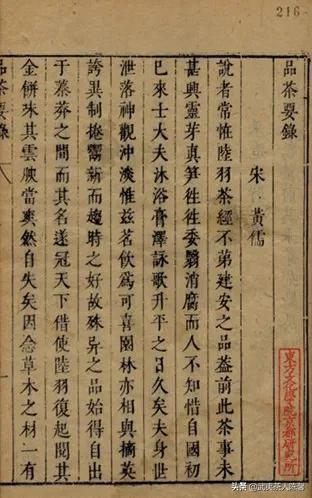 216
品茶要錄
宋 黃儒
說者常怪陸羽茶經不第建安之品蓋前此茶事未
甚興靈芽真笋徃徃委翳消腐而人不知惜自國初
已來士大夫沐浴膏澤詠歌升平之日久矣夫身世
泄落神觀沖淡惟茲茗飲為可喜園林亦相與摘英
誇異制捲鬻新而趨時之好故殊異之品始得自出
于蓁莽之間而其名遂冠天下借使陸羽復起閱其
金餅味其雲腴當爽然自失矣因念草木之材一有
品茶要錄
東方文化學院京都研究所
头条 @武夷茶人陈